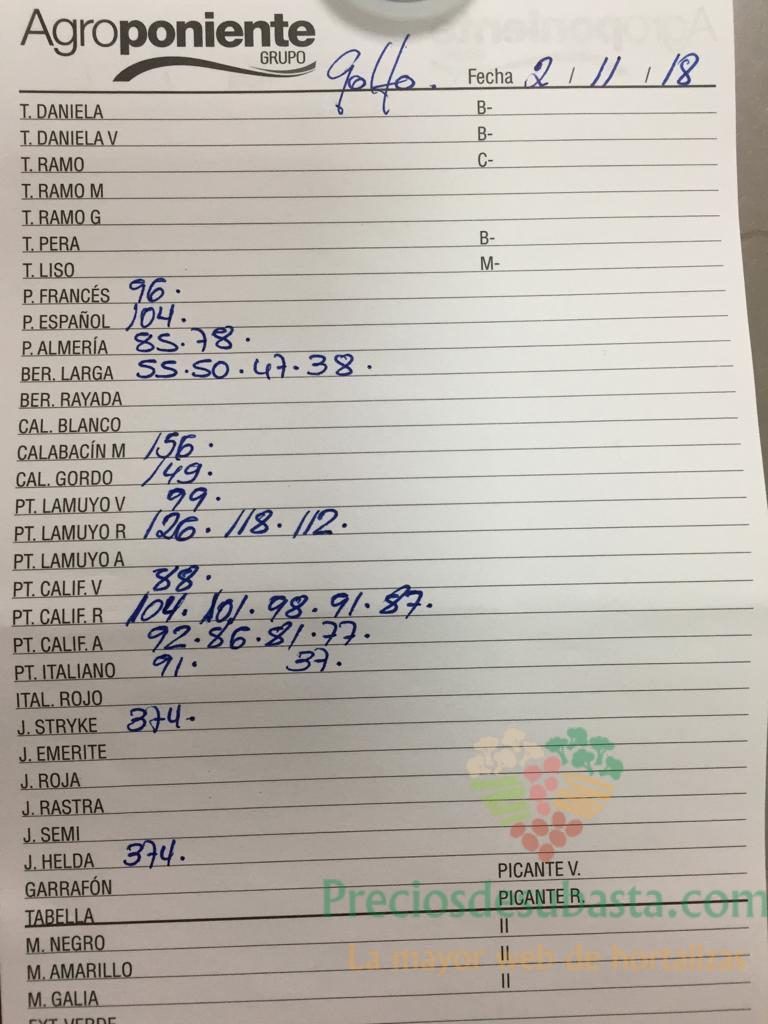 Agroponiente
GRUPO
golfo. Fecha 2 / 11 / 18
T. DANIELA B-
T. DANIELA V B-
T. RAMO C-
T. RAMO M
T. RAMO G
T. PERA B-
T. LISO M-
P. FRANCÉS 96.
P. ESPAÑOL 104.
P. ALMERÍA 85.78.
BER. LARGA 55.50.47.38.
BER. RAYADA
CAL. BLANCO
CALABACÍN M 156.
CAL. GORDO 149.
PT. LAMUYO V 99.
PT. LAMUYO R 126. 118. 112.
PT. LAMUYO A
PT. CALIF. V 88.
PT. CALIF. R 104. 101. 98. 91. 87.
PT. CALIF. A 92.86.81.77.
PT. ITALIANO 91. 37.
ITAL. ROJO
J. STRYKE 374.
J. EMERITE
J. ROJA
J. RASTRA
J. SEMI
J. HELDA 374.
GARRAFÓN PICANTE V.
TABELLA PICANTE R.
Preciosdesubasta.com
M. NEGRO II
M. AMARILLO II
La mayor web de hortalizas
M. GALIA II
EXT. VERDE